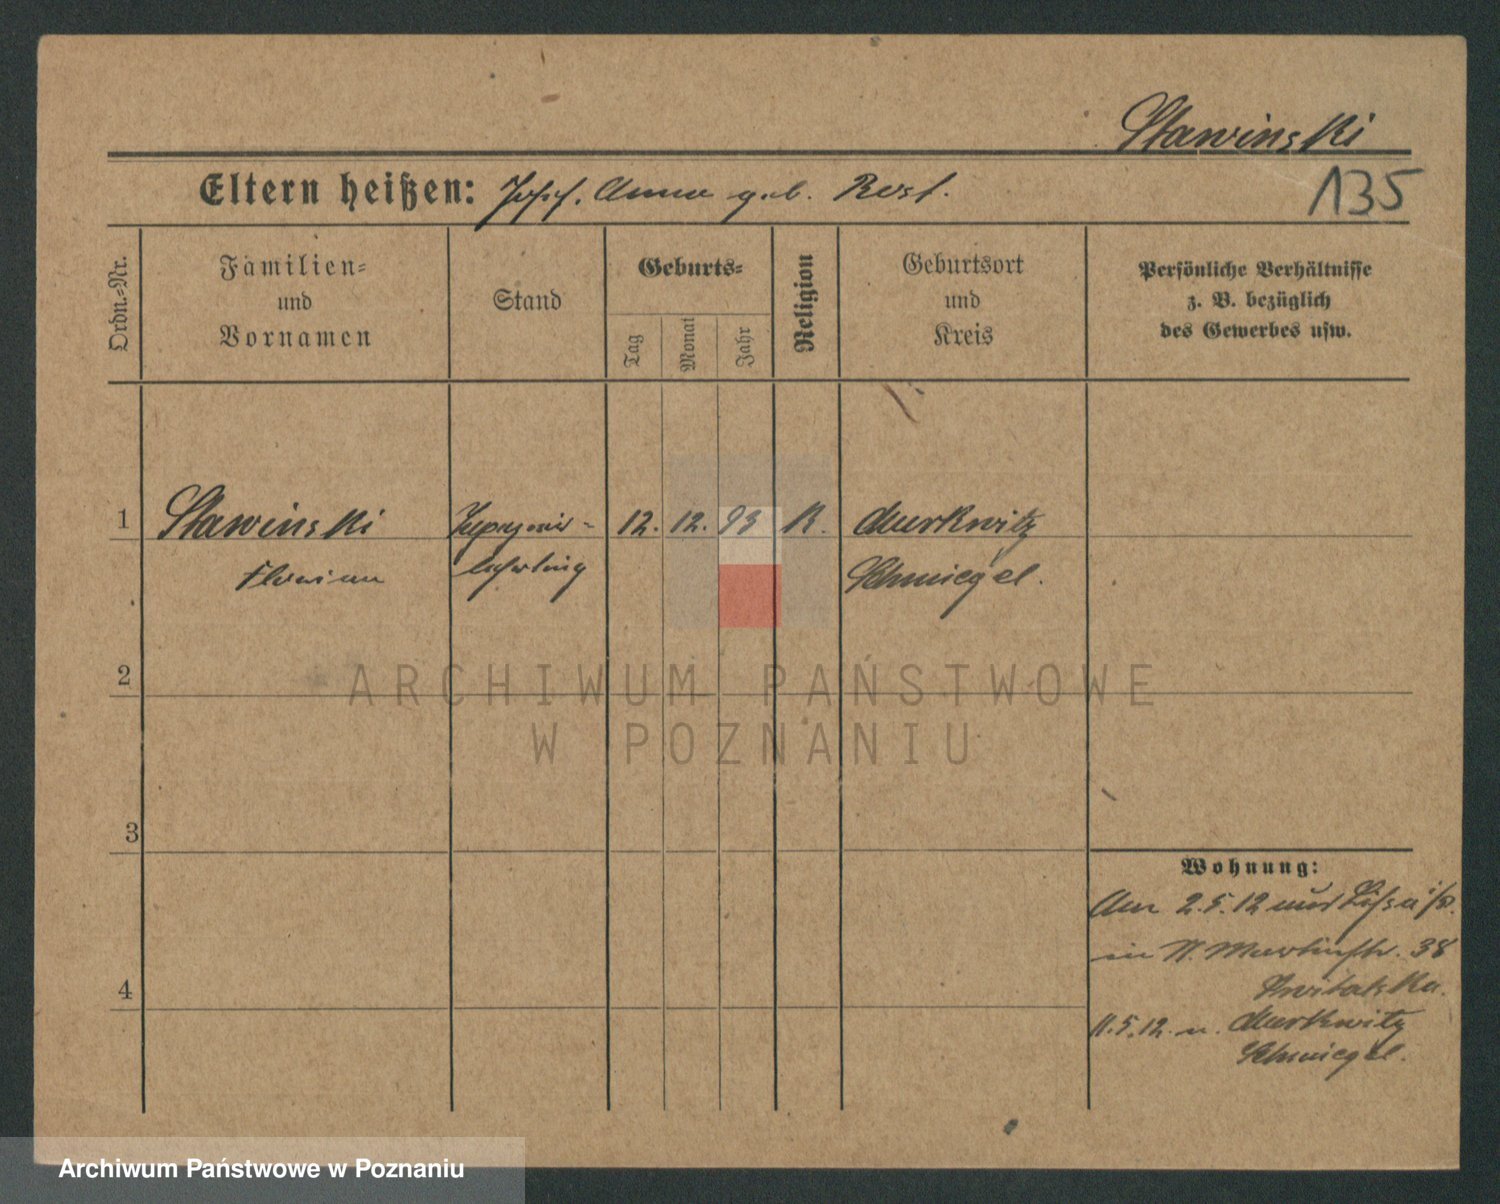 Stawinski
Eltern heißen: Josef. Anna geb. Rost.
135
Ordn.-Nr.
Familien-
und
Vornamen
Stand
Geburts-
Tag
Monat
Jahr
Religion
Geburtsort
und
Kreis
Persönliche Verhältnisse
z. B. bezüglich
des Gewerbes usw.
1
Stawinski
Florian
lehrling
12. 12. 93
K.
Murkwitz
Schmiegel.
2
ARCHIWUM PAŃSTWOWE
W POZNANIU
3
Wohnung:
Am 2.5.12 aus Lissa i/P.
in St. Martinstr. 38
4
11.5.12. n. Murkwitz
Schmiegel.
Archiwum Państwowe w Poznaniu